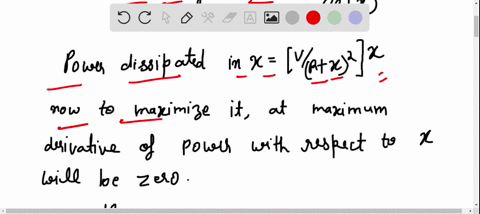 Power dissipated in x = [V/(A+x)²] x
now to maximize it, at maximum
derivative of power with respect to x
will be zero.